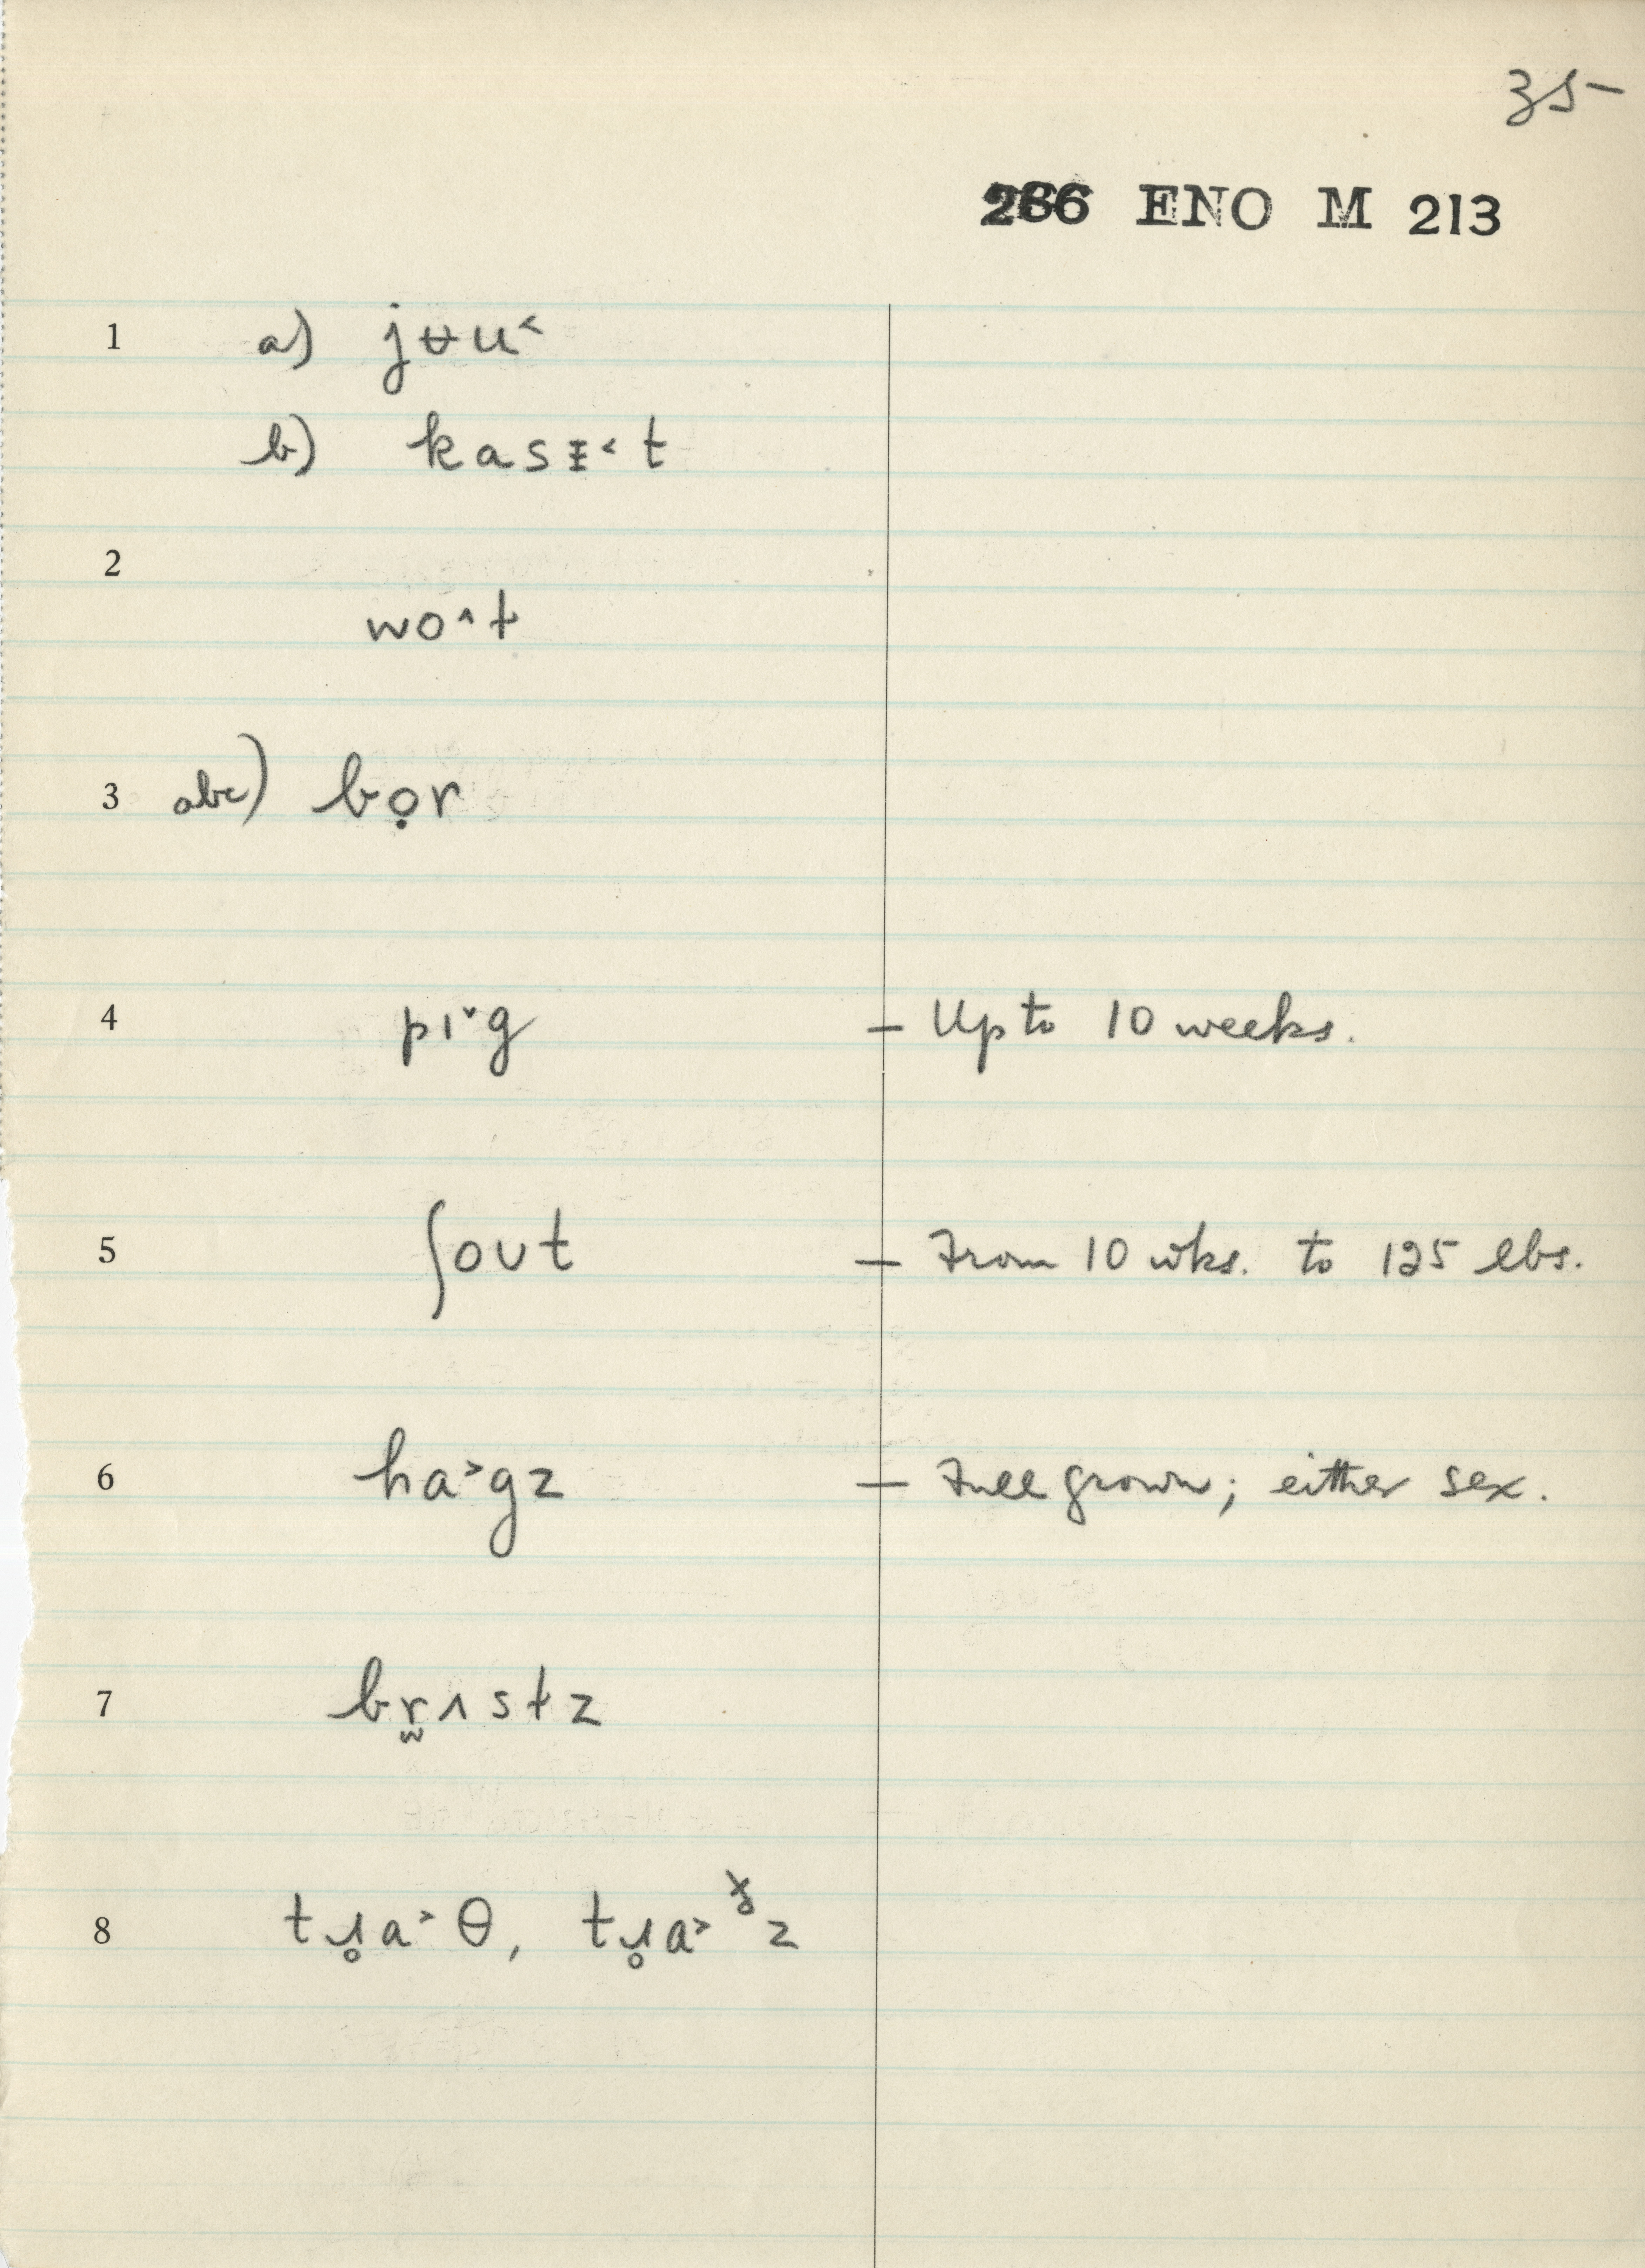 35
286 ENO M 213
1 a) jʉu˂
b) kasᵻ˂t
2
wo˄t
3 abc) bọr
4 pɪ˅g – Up to 10 weeks.
5 ʃoʊt – From 10 wks. to 125 lbs.
6 ha˃gz – Full grown; either sex.
7 br̫ʌstz
8 tɹ̥a˃θ, tɹ̥a˃ z